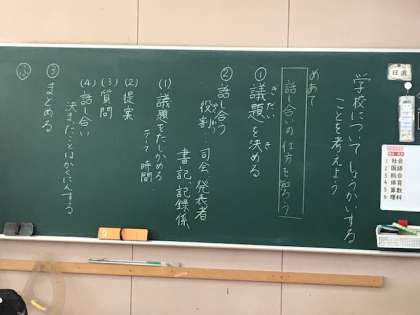 学校についてしょうかいする
ことを考えよう
めあて
話し合いの仕方を知ろう
①議題を決める
ぎだい
き
②話し合う
役割
やくわり
司会 発表者
書記 記録係
(1)議題をたしかめる
テーマ 時間
(2)提案
(3)質問
(4)話し合い
決まったことはかくにんする
③まとめる
日直
1 社会
2 国語
3 総合
4 体育
5 算数
6 理科